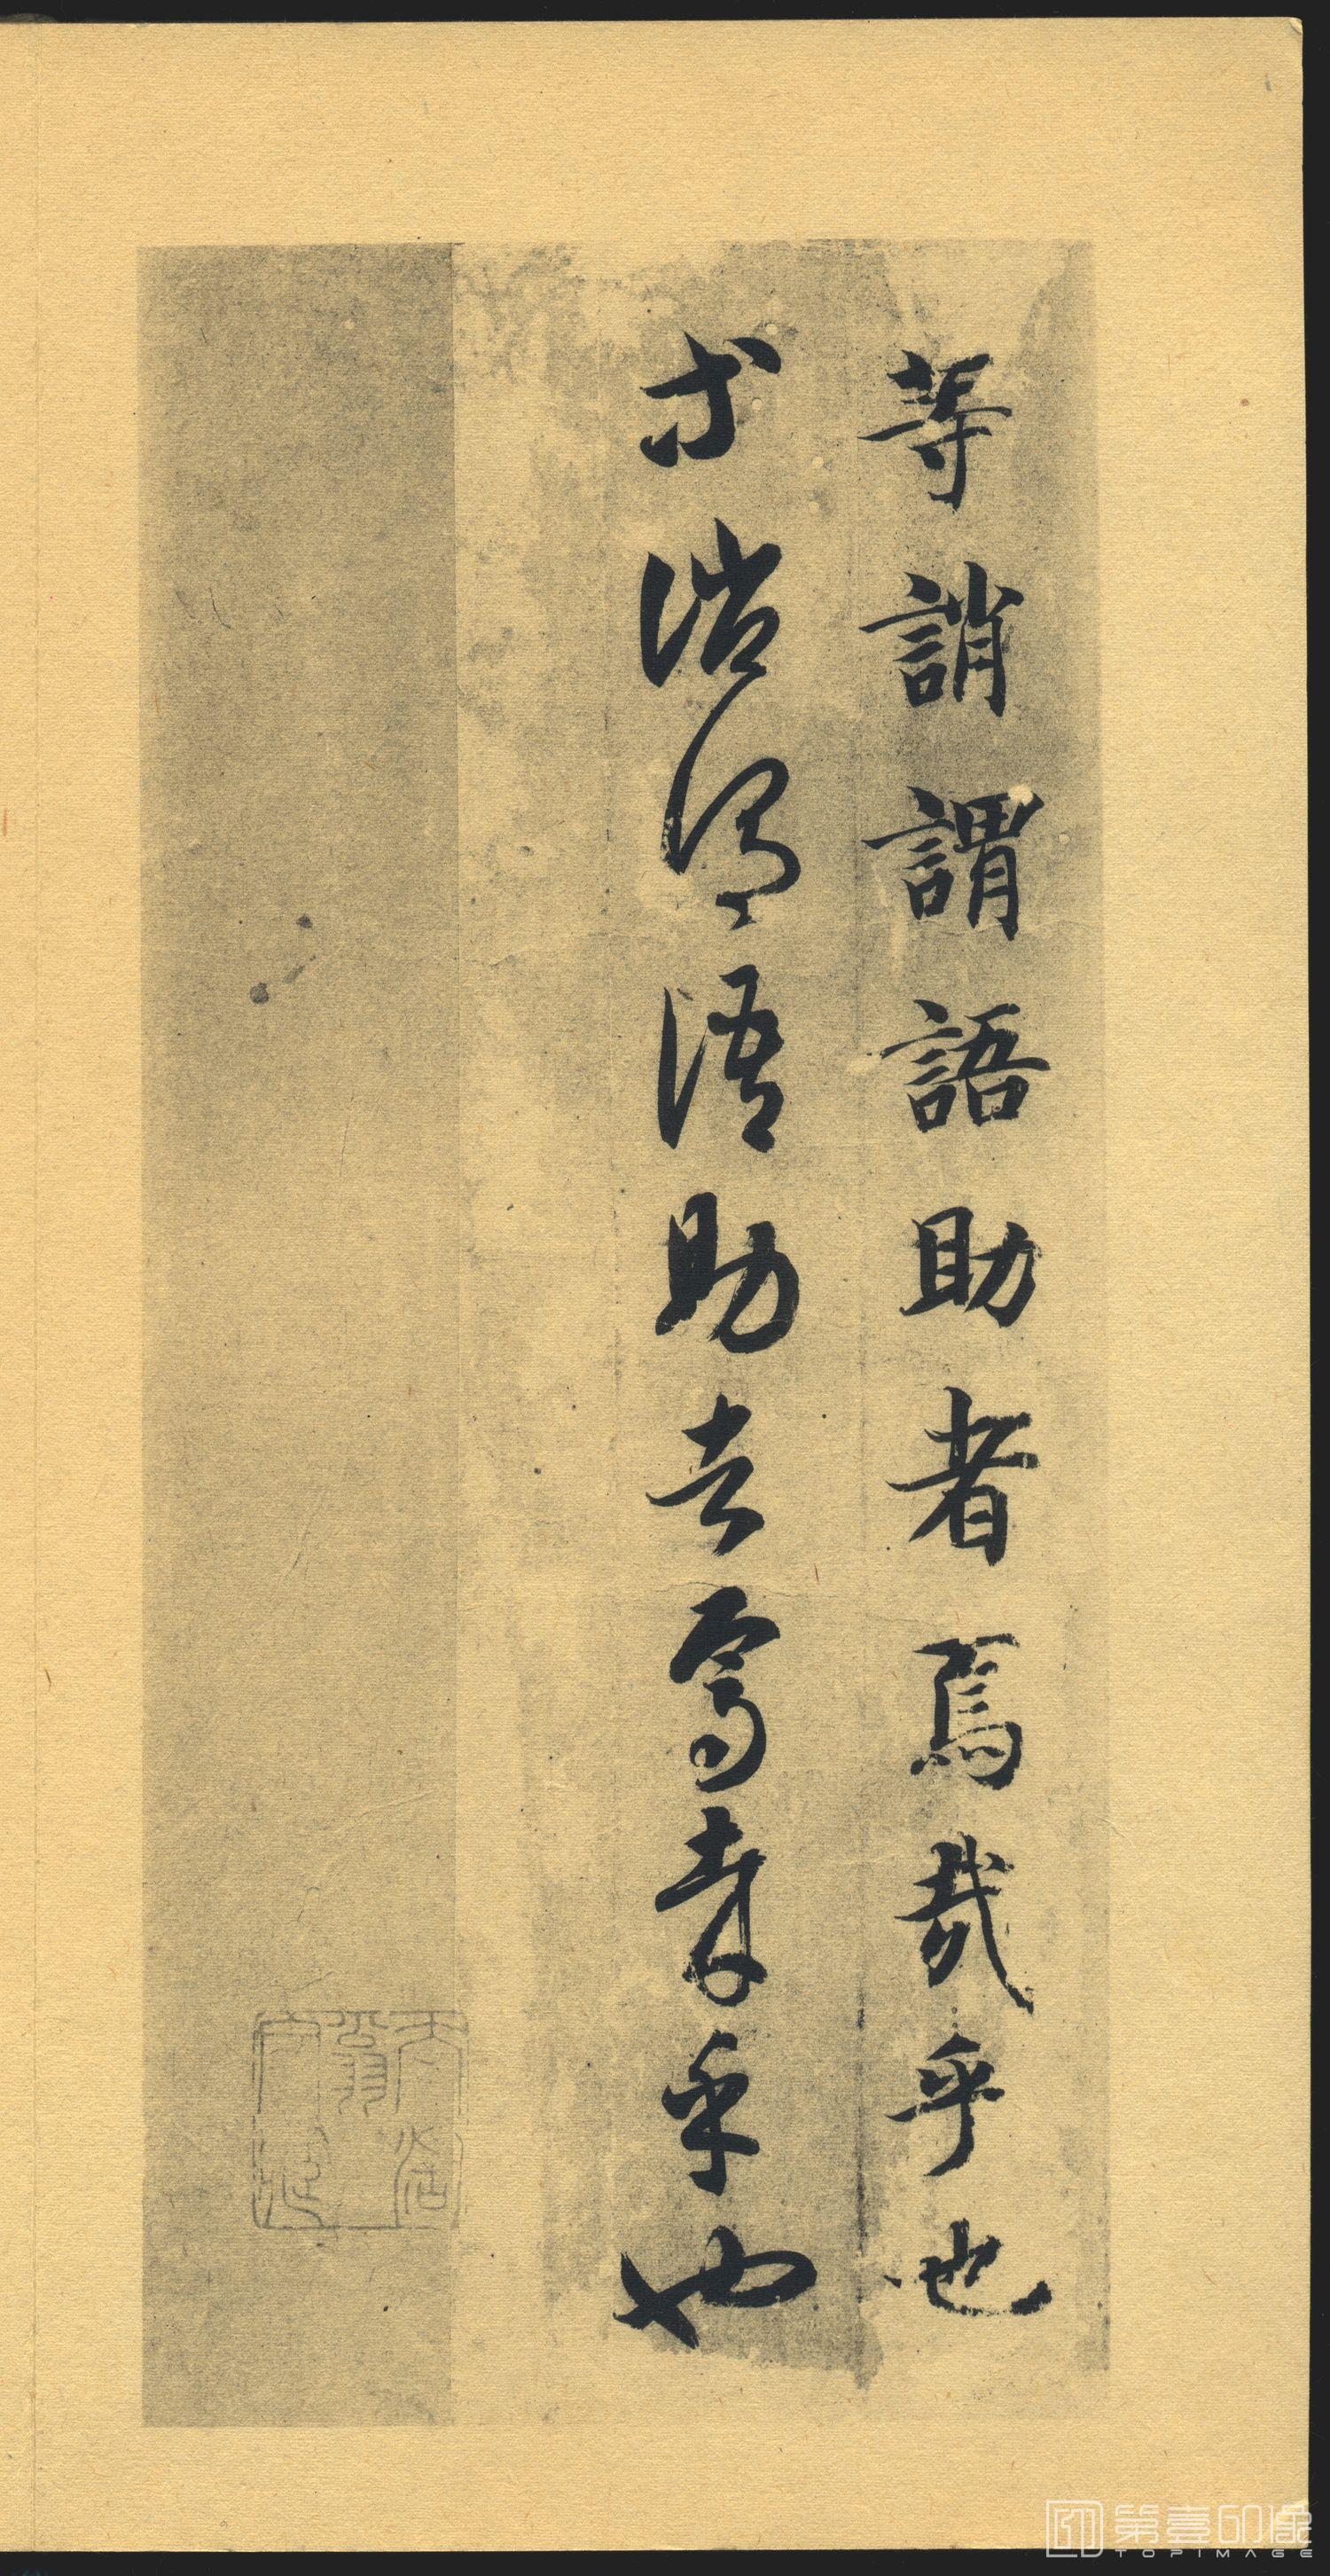 等誚謂語助者焉哉乎也
等誚謂語助者焉哉乎也
第壹印像
TOPIMAGE